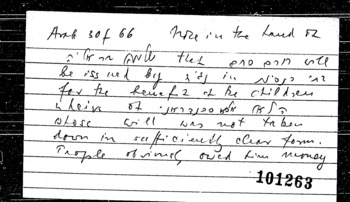 Arab 30 f 66 Note in the hand of
that חרם סתם will
be issued by in
for the benefit of the children
& heirs of
whose will was not taken
down in sufficiently clear form.
People obviously owed him money
101263